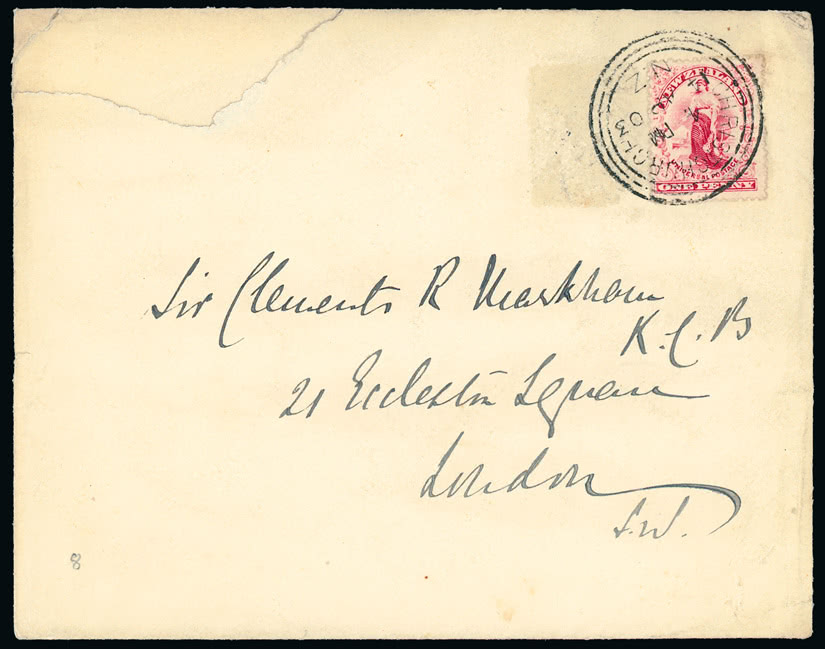 NEW ZEALAND
UNIVERSAL POSTAGE
ONE PENNY
CHRISTCHURCH
PM
03
N.Z
Sir Clements R Markham
K.C.B
21 Eccleston Square
London
S.W.
8